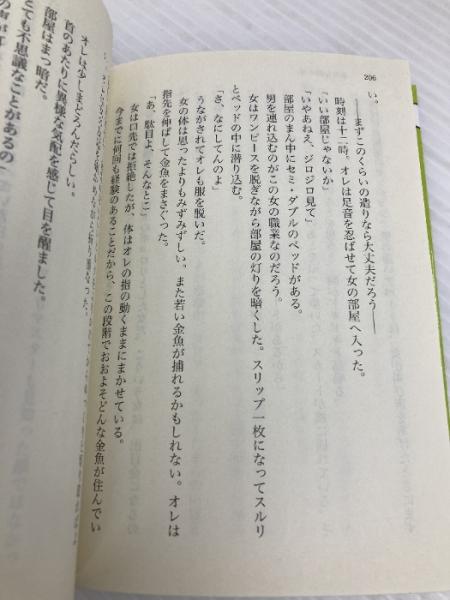 206
い。
――まずこのくらいの造りなら大丈夫だろう――
時刻は十二時。オレは足音を忍ばせて女の部屋へ入った。
「いい部屋じゃないか」
「いやあねえ、ジロジロ見て」
部屋のまん中にセミ・ダブルのベッドがある。
男を連れ込むのがこの女の職業なのだろう。
女はワンピースを脱ぎながら部屋の灯りを暗くした。スリップ一枚になってスルリ
とベッドの中に潜り込む。
「さ、なにしてんのよ」
うながされてオレも服を脱いだ。
女の体は思ったよりもみずみずしい。また若い金魚が捕れるかもしれない。オレは
指先を伸ばして金魚をまさぐった。
「あ、駄目よ、そんなとこ」
女は口先では拒絶したが、体はオレの指の動くままにまかせている。
今までに何回も経験のあることだから、この段階でおおよそどんな金魚が住んでい
オレは少しまどろんだらしい。
首のあたりに異様な気配を感じて目を醒ました。
部屋はまっ暗だ。
とても不思議なことがあるの